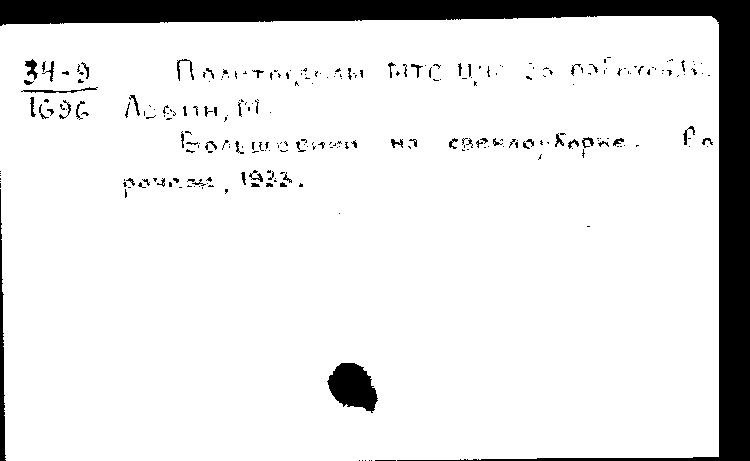 34-9 Политотделы МТС ЦЧО за работой.
1696 Левин, М.
Большевики на свеклоуборке. Во
ронеж, 1933.